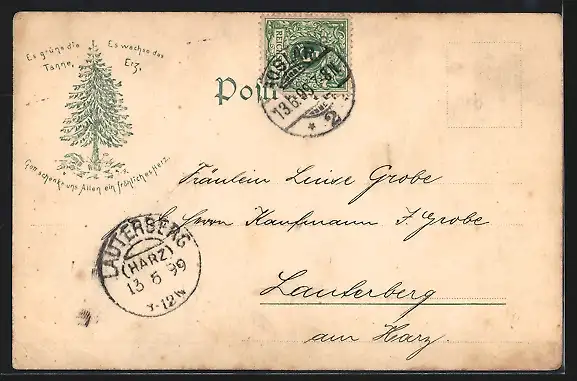 Es grüne die Es wachse das
Tanne, Erz,
Gott schenke uns Allen ein fröhliches Herz.
REICHSPOST
GOSLAR
13.6.99
* 2
Fräulein Luise Grobe
Herrn Kaufmann F Grobe
LAUTERBERG
(HARZ)
13 6 99
-12N
Lauterberg
am Harz